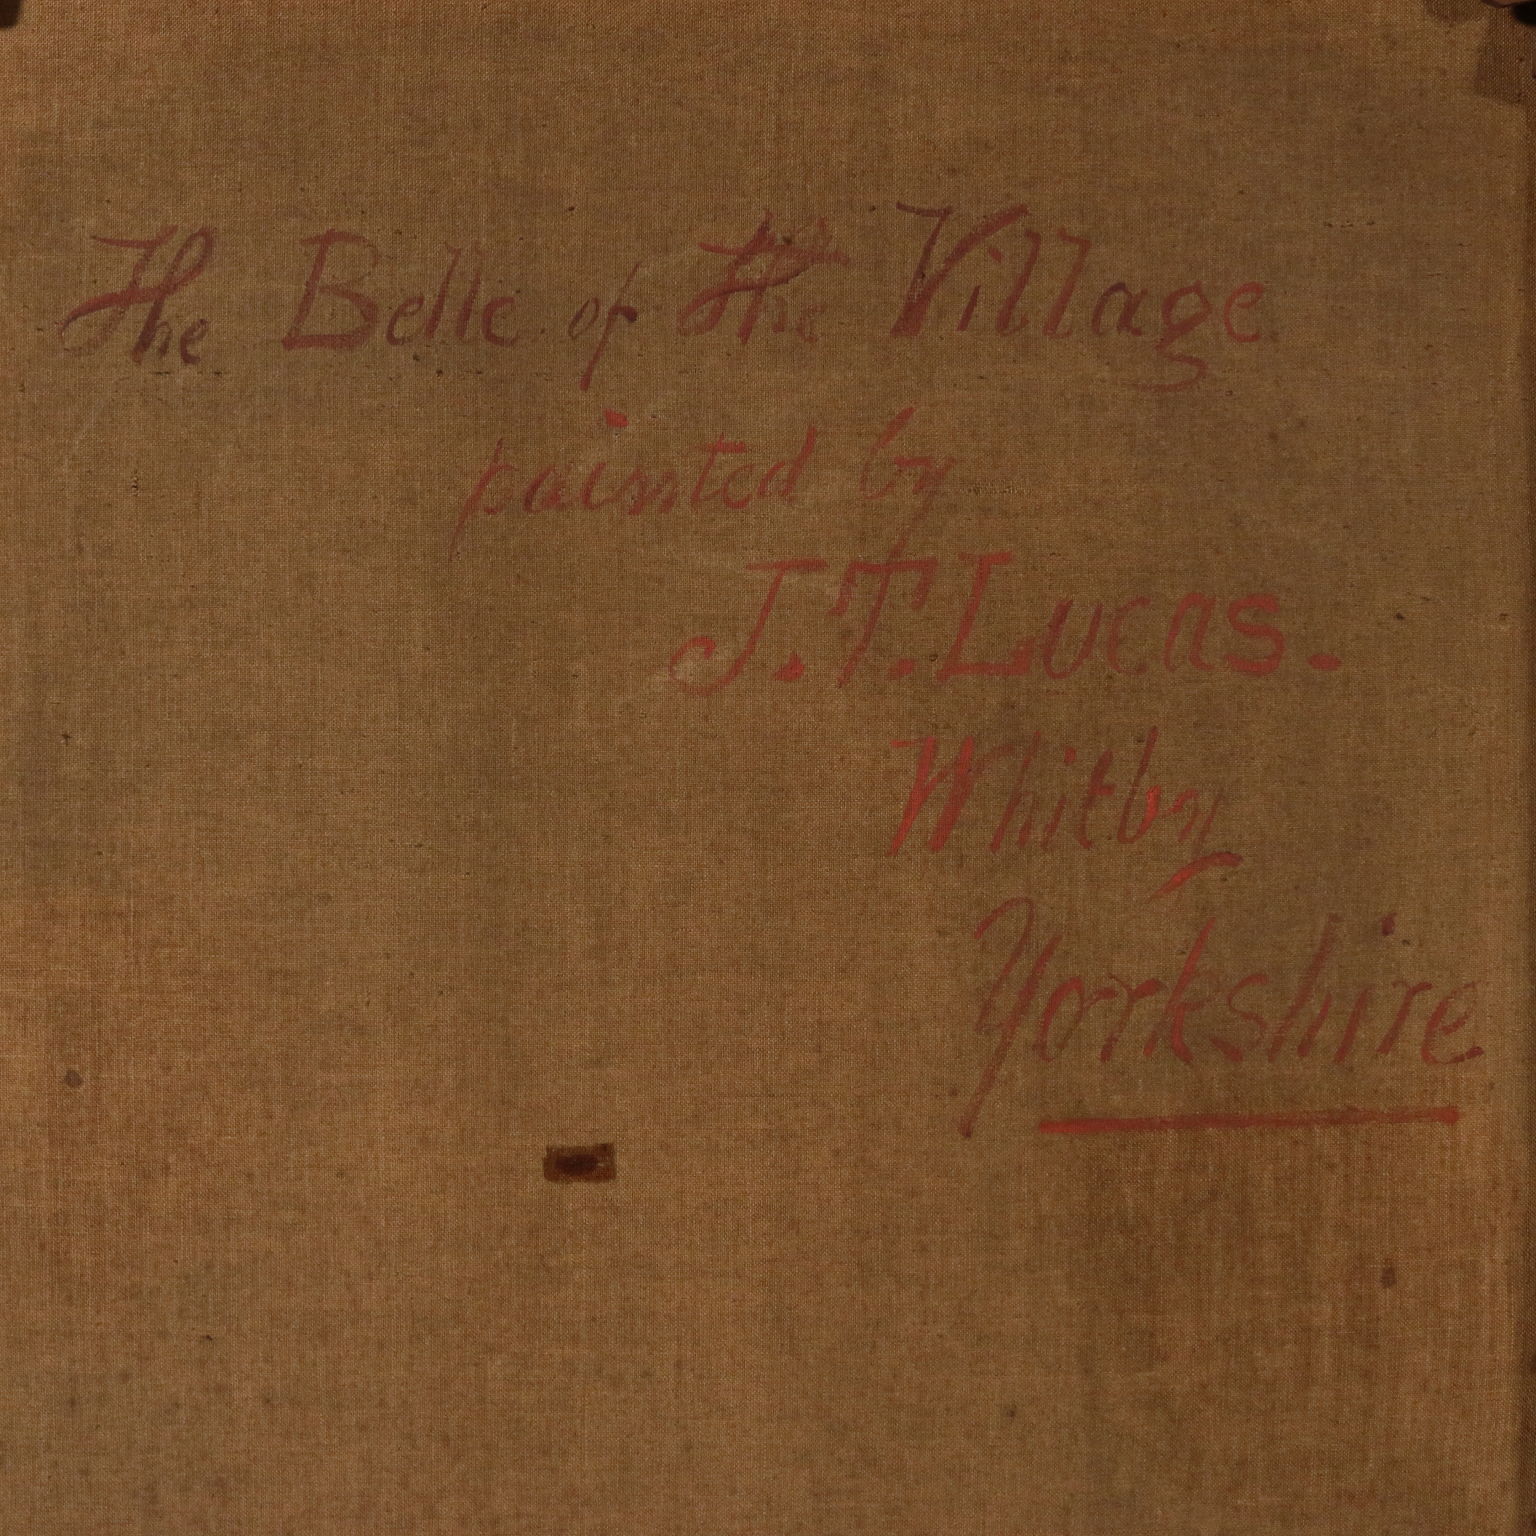 The Belle of the Village
painted by
J. T. Lucas.
Whitby
Yorkshire